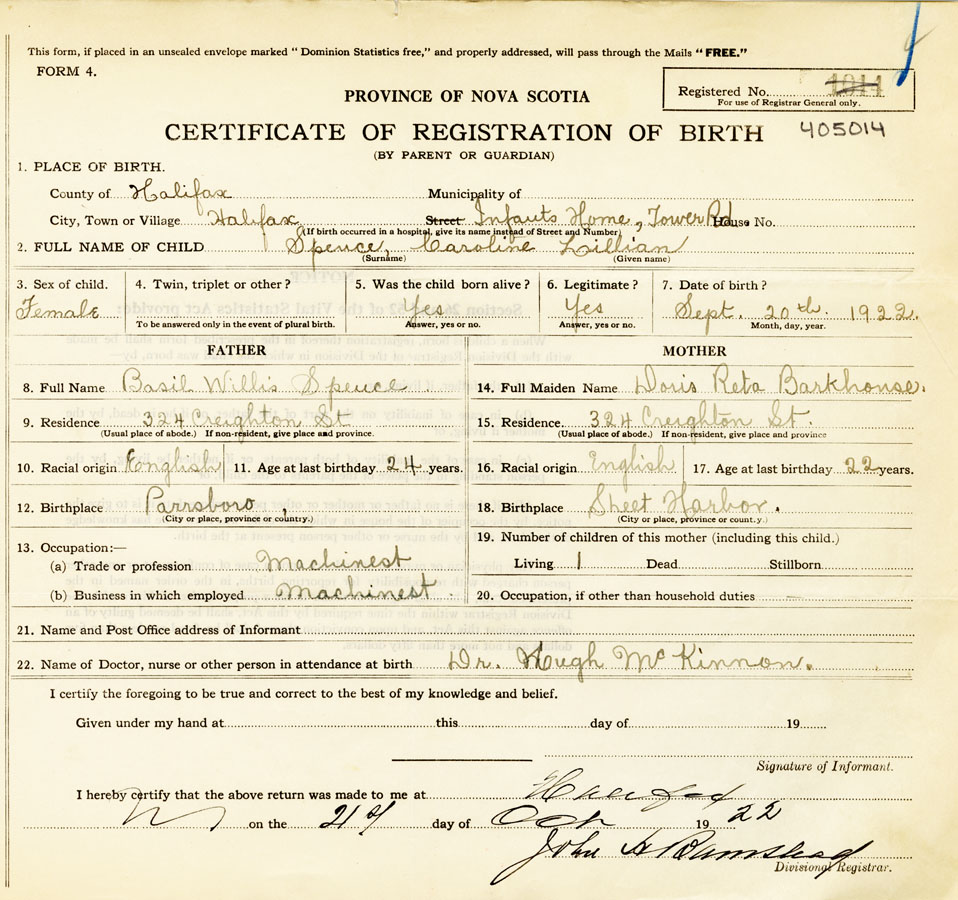 This form, if placed in an unsealed envelope marked "Dominion Statistics free," and properly addressed, will pass through the Mails "FREE."
FORM 4.
Registered No. 1014
For use of Registrar General only.
PROVINCE OF NOVA SCOTIA
CERTIFICATE OF REGISTRATION OF BIRTH 405014
(BY PARENT OR GUARDIAN)
1. PLACE OF BIRTH.
County of Halifax Municipality of
City, Town or Village Halifax Street Infants Home, Tower Rd. House No.
(If birth occurred in a hospital, give its name instead of Street and Number)
2. FULL NAME OF CHILD Spence, Caroline Lillian
(Surname) (Given name)
3. Sex of child. 4. Twin, triplet or other? 5. Was the child born alive? 6. Legitimate? 7. Date of birth?
Female Yes Yes Sept. 20th. 1922.
To be answered only in the event of plural birth. Answer, yes or no. Answer, yes or no. Month, day, year.
FATHER MOTHER
8. Full Name Basil Willis Spence 14. Full Maiden Name Doris Reta Barkhouse.
9. Residence 324 Creighton St 15. Residence. 324 Creighton St.
(Usual place of abode.) If non-resident, give place and province. (Usual place of abode.) If non-resident, give place and province
10. Racial origin English 11. Age at last birthday 24 years. 16. Racial origin English 17. Age at last birthday 22 years.
12. Birthplace Parrsboro, 18. Birthplace Sheet Harbor.
(City or place, province or country.) (City or place, province or country.)
13. Occupation:— 19. Number of children of this mother (including this child.)
(a) Trade or profession Machinest Living 1 Dead Stillborn
(b) Business in which employed Machinest 20. Occupation, if other than household duties
21. Name and Post Office address of Informant
22. Name of Doctor, nurse or other person in attendance at birth Dr. Hugh McKinnon.
I certify the foregoing to be true and correct to the best of my knowledge and belief.
Given under my hand at this day of 19
Signature of Informant.
I hereby certify that the above return was made to me at Halifax
on the 21 day of Oct 1922
John A
Divisional Registrar.